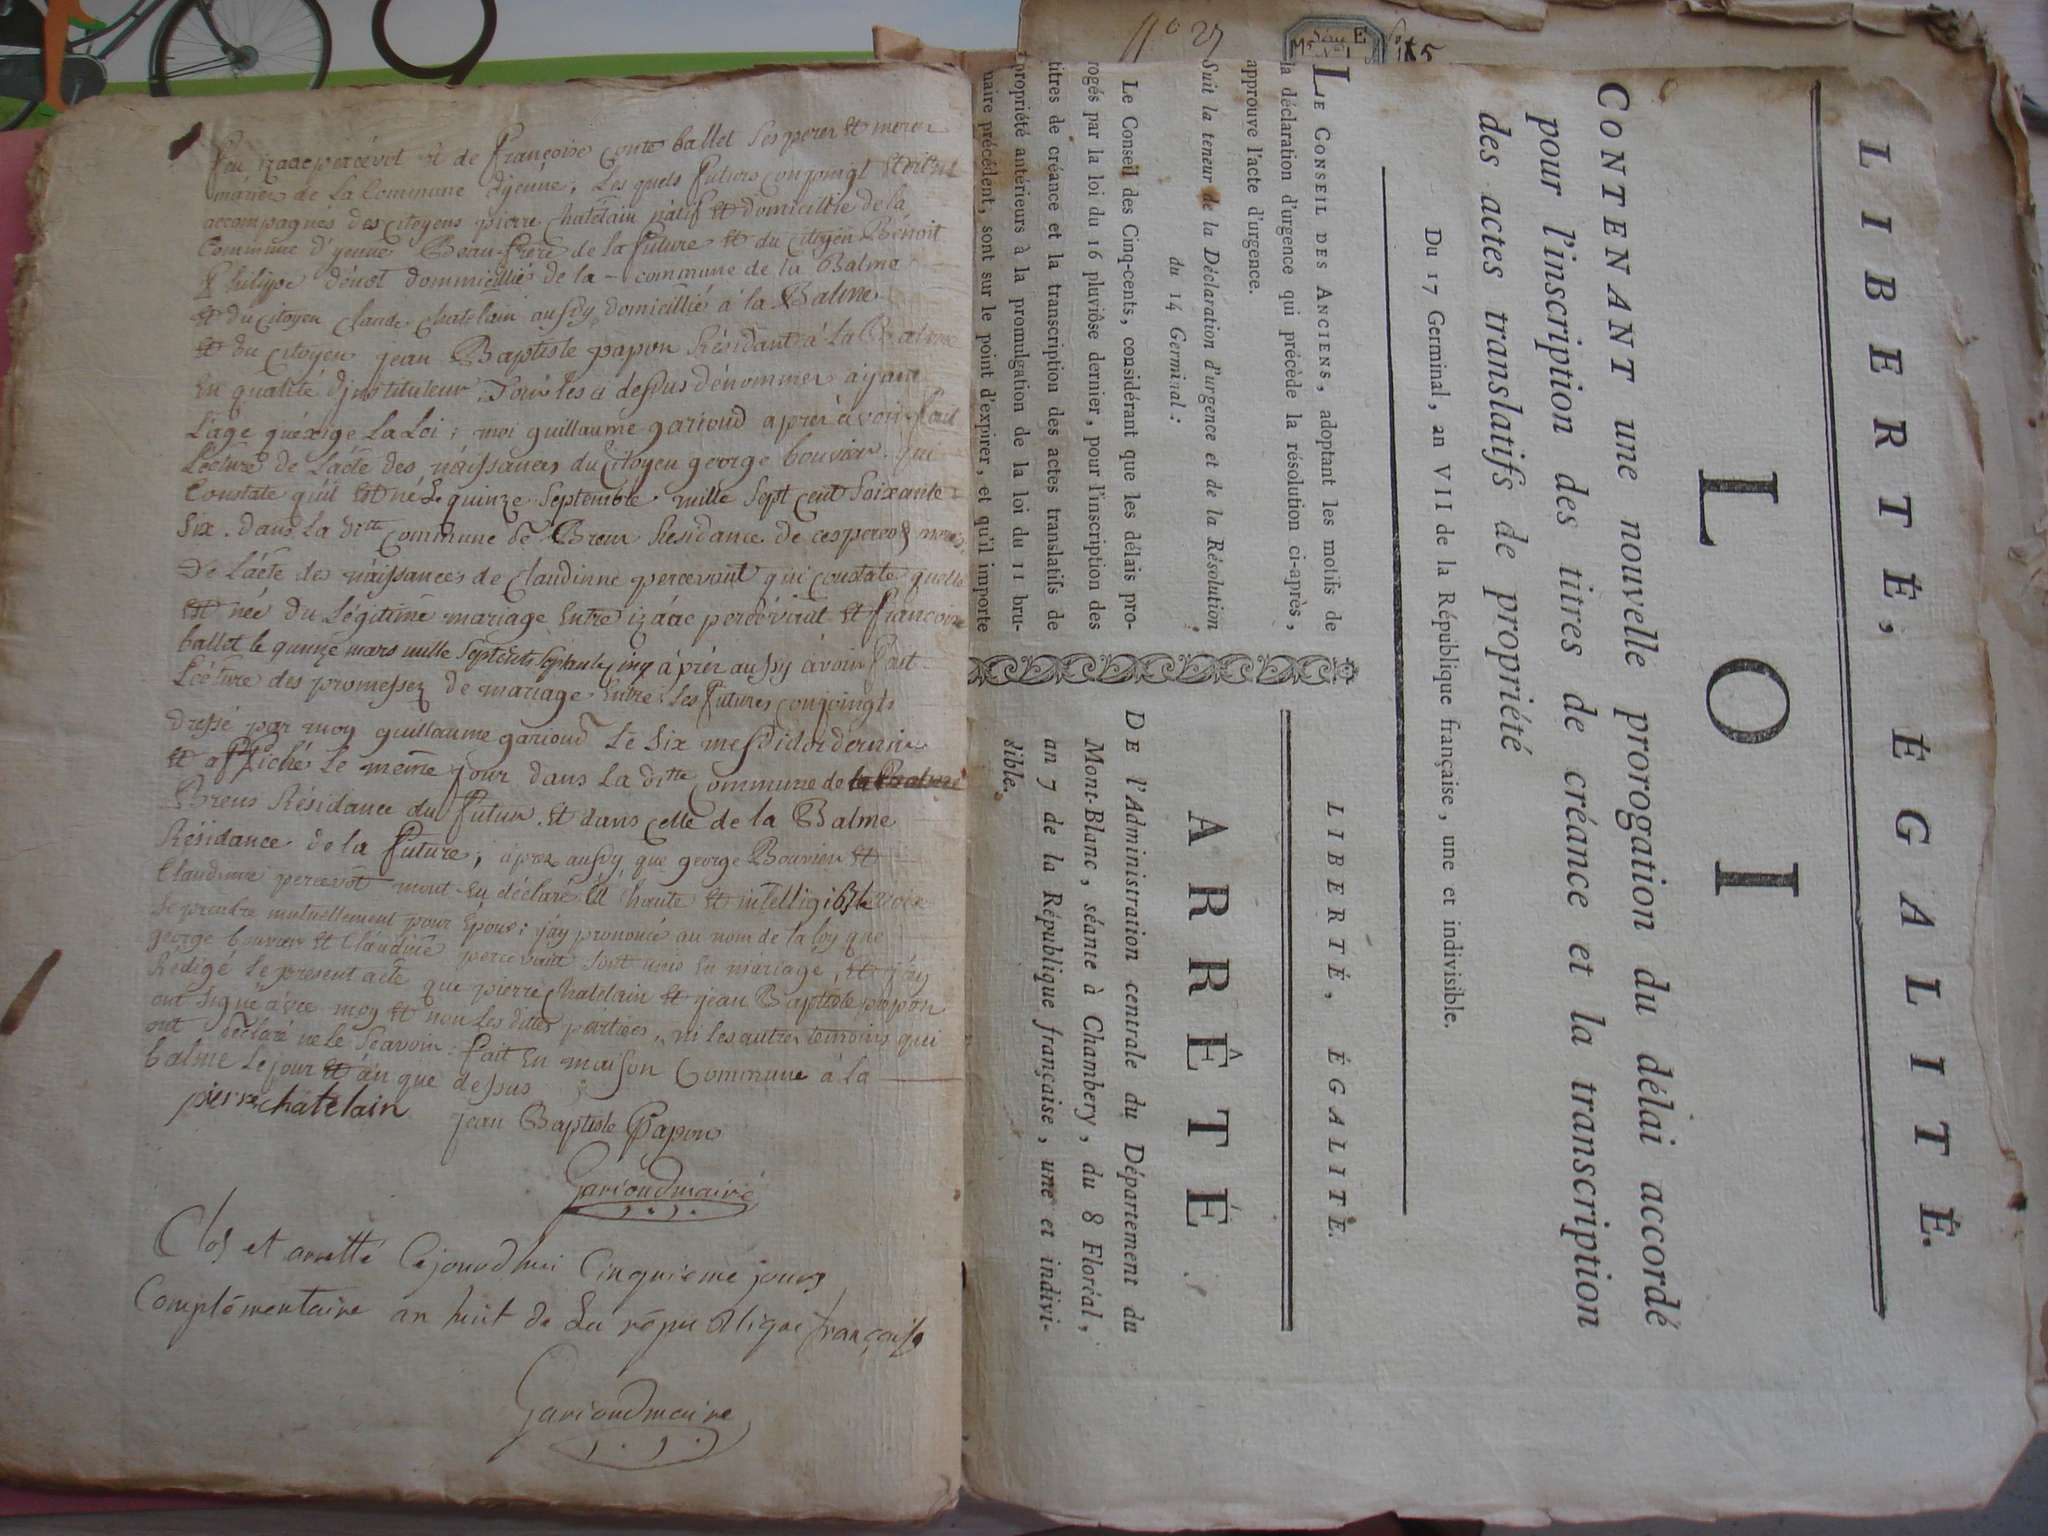 feu izaac percévot et de Françoise conte ballet ses peres et meres
mariés de la Commune d'jenne, Les quels futurs conjoingt
accompagnés des citoyens pierre Chatelain natif et domicillié de la
Commune d'yenne Beau-frère de la future et du citoyen Bénoit
Philippe dénot dommicillié de la - commune de la Balme
et du citoyen Claude Chatelain aussy domicillié à la Balme
et du citoyen jean Baptiste papon Résidant à La Balme
En qualité d'jnstituteur, Tous les ci dessus dénommer ayant
L'age quéxige La Loi ; moi guillaume garioud après avoir fait
Lecture de L'acte des naissances du Citoyen george bouvier. qui
Constate quil Est né Le quinze Septembre mille Sept cent Soixante
Six. dans La ditte commune de Brens Résidance de ces peres & meres
De L'acte des naissances de claudinne percevaut qui constate quelle
est née du Légitime mariage Entre izaac percévaut et Françoise
ballet le quinze mars mille septcents septante cinq àprér aussy avoir fait
Lecture des promessez de mariage Entre Les futures conjoingts
Dressé par moy guillaume garioud Le Six messidor dernier
et affiché le même jour dans La ditte commune de la Balme
Brens Résidance du futur et dans celle de la Balme
Résidance de la future, àprez aussy que george Bouvier et
Claudinne percevot mont Eu déclaré à haute et intelligible voix
se prendre mutuellement pour Epous ; j'ay prononcé au nom de la loy que
george bouvier et Claudine percevaut sont unis en mariage, et j'ay
Rédigé le présent acte que pierre Chatelain et jean Baptiste papon
ont signé avec moy et non Les dittes parties, ni les autres temoins qui
ont déclaré ne le Scavoir. fait En maison Commune à la
balme Le jour et an que dessus
pierre chatelain
jean Baptiste Papon
Garioud maire
Clos et arretté Cejourdhui Cinquieme jours
Complémentaire an huit de La république française
Garioud maire
N° 27
Série E
Ms N° 1
LIBERTÉ, ÉGALITÉ.
LOI
CONTENANT une nouvelle prorogation du délai accordé
pour l'inscription des titres de créance et la transcription
des actes translatifs de propriété
Du 17 Germinal, an VII de la République française, une et indivisible.
LE CONSEIL DES ANCIENS, adoptant les motifs de
la déclaration d'urgence qui précède la résolution ci-après,
approuve l'acte d'urgence.
Suit la teneur de la Déclaration d'urgence et de la Résolution
du 14 Germinal :
Le Conseil des Cinq-cents, considérant que les délais pro-
rogés par la loi du 16 pluviôse dernier, pour l'inscription des
titres de créance et la transcription des actes translatifs de
propriété antérieurs à la promulgation de la loi du 11 bru-
maire précédent, sont sur le point d'expirer, et qu'il importe
LIBERTÉ, ÉGALITÉ.
ARRÊTÉ
DE l'Administration centrale du Département du
Mont-Blanc, séante à Chambery, du 8 Floréal,
an 7 de la République française, une et indivi-
sible.